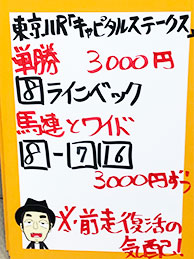 東京11R「キャピタルステークス」
単勝 3000円
8 ラインベック
馬連とワイド
8-7 16
3000円ずつ
X・前走復活の
気配!